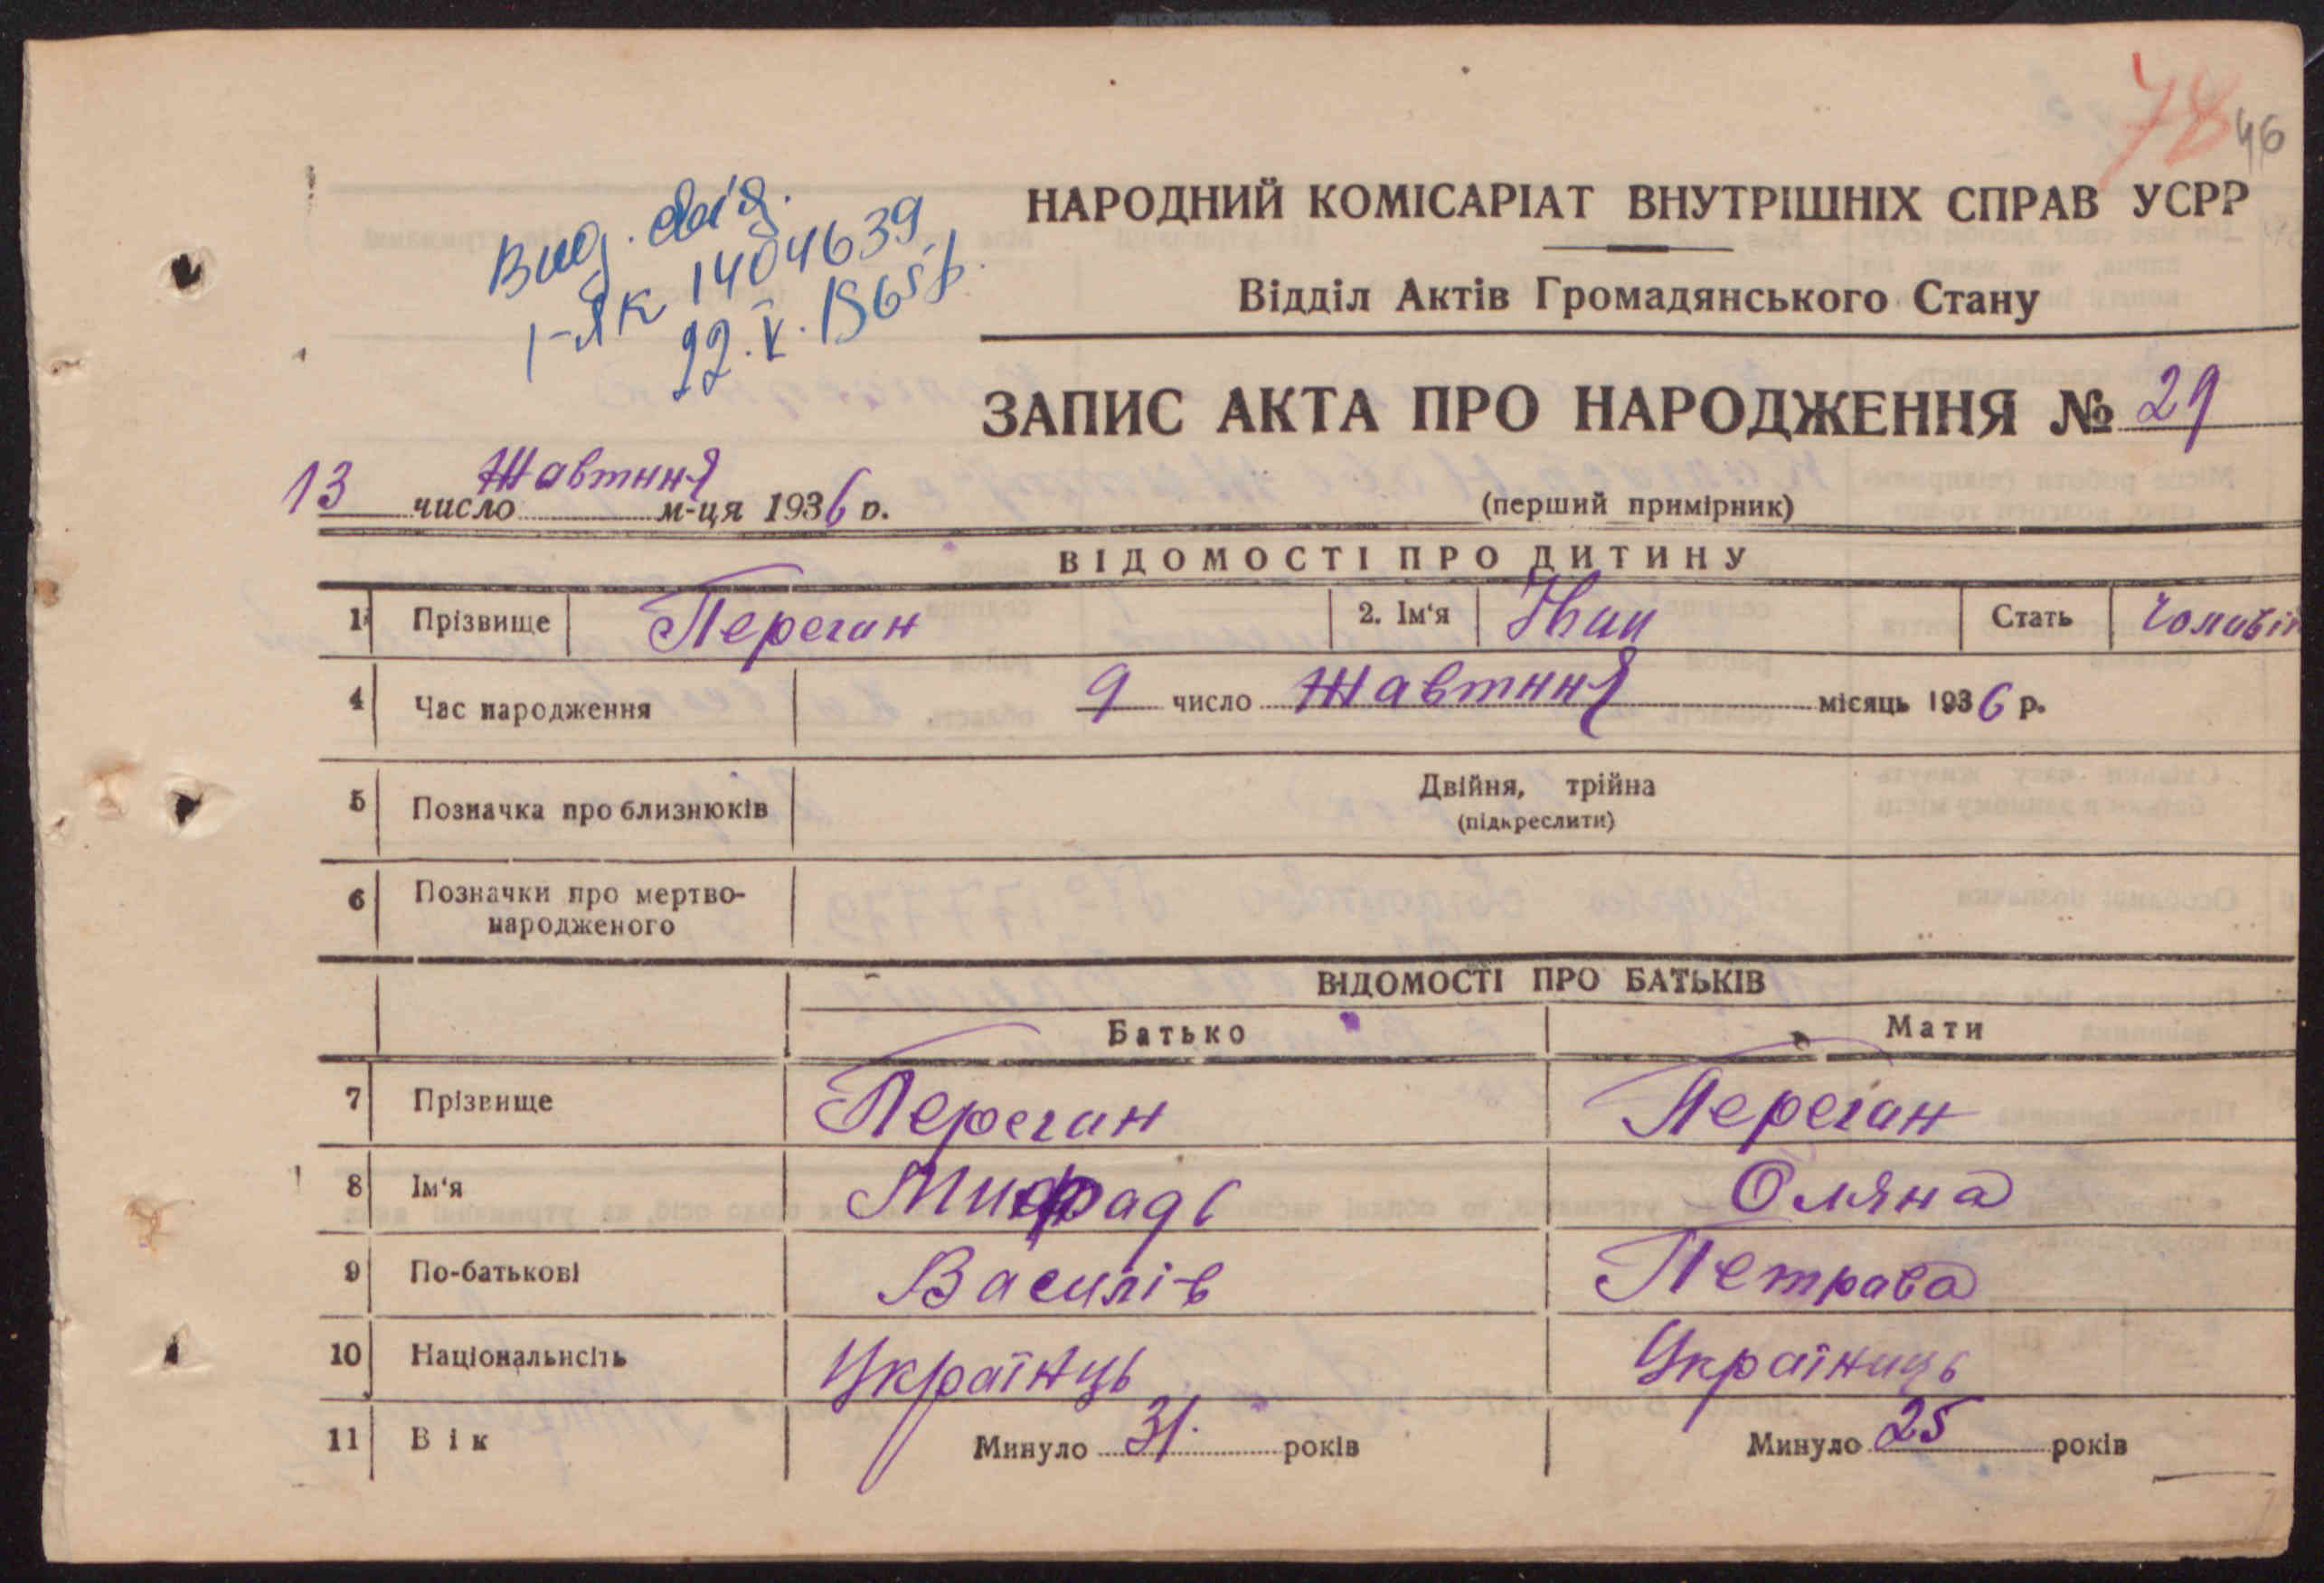 78
46
Вид. свід.
І-ЯК 1404639
22.V.1965р.
НАРОДНИЙ КОМІСАРІАТ ВНУТРІШНІХ СПРАВ УСРР
Відділ Актів Громадянського Стану
ЗАПИС АКТА ПРО НАРОДЖЕННЯ № 29
13 число Жавтння м-ця 1936 р.
(перший примірник)
ВІДОМОСТІ ПРО ДИТИНУ
1 Прізвище Переган 2. Ім'я Іван Стать чоловік
4 Час народження 9 число Жавтння місяць 1936 р.
5 Позначка про близнюків Двійня, трійна
(підкреслити)
6 Позначки про мертво-
народженого
ВІДОМОСТІ ПРО БАТЬКІВ
Батько Мати
7 Прізвище Переган Переган
8 Ім'я Оляна
9 По-батькові Василів Петрова
10 Національність Українць Україниць
11 Вік Минуло 31 років Минуло 25 років